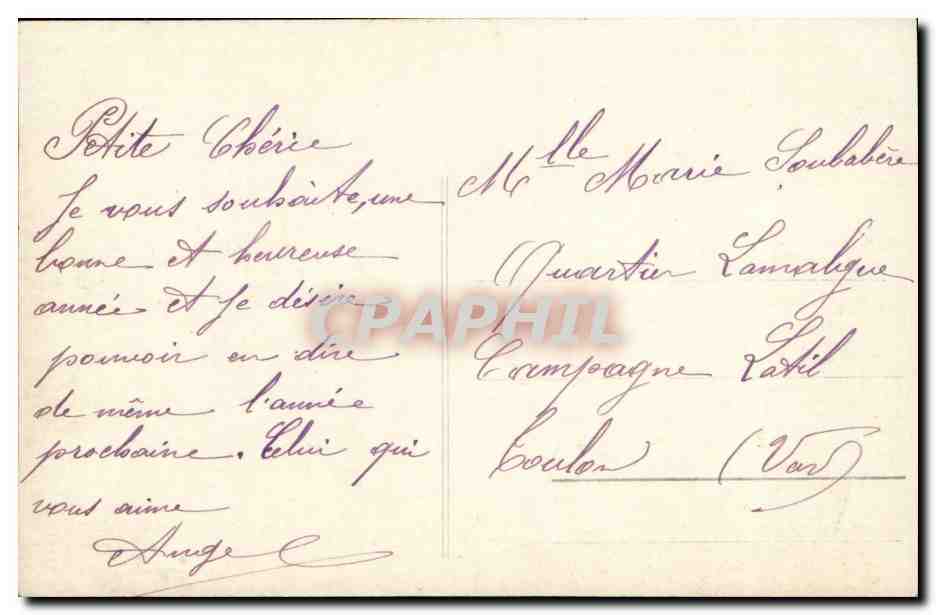 Petite Chérie
Je vous souhaite, une
bonne et heureuse
année et Je désire
pouvoir en dire
de même l'année
prochaine. Celui qui
vous aime
Ange
Mlle Marie Soubabère
Quartier Lamalgue
Campagne Latil
Toulon (Var)
CPAPHIL